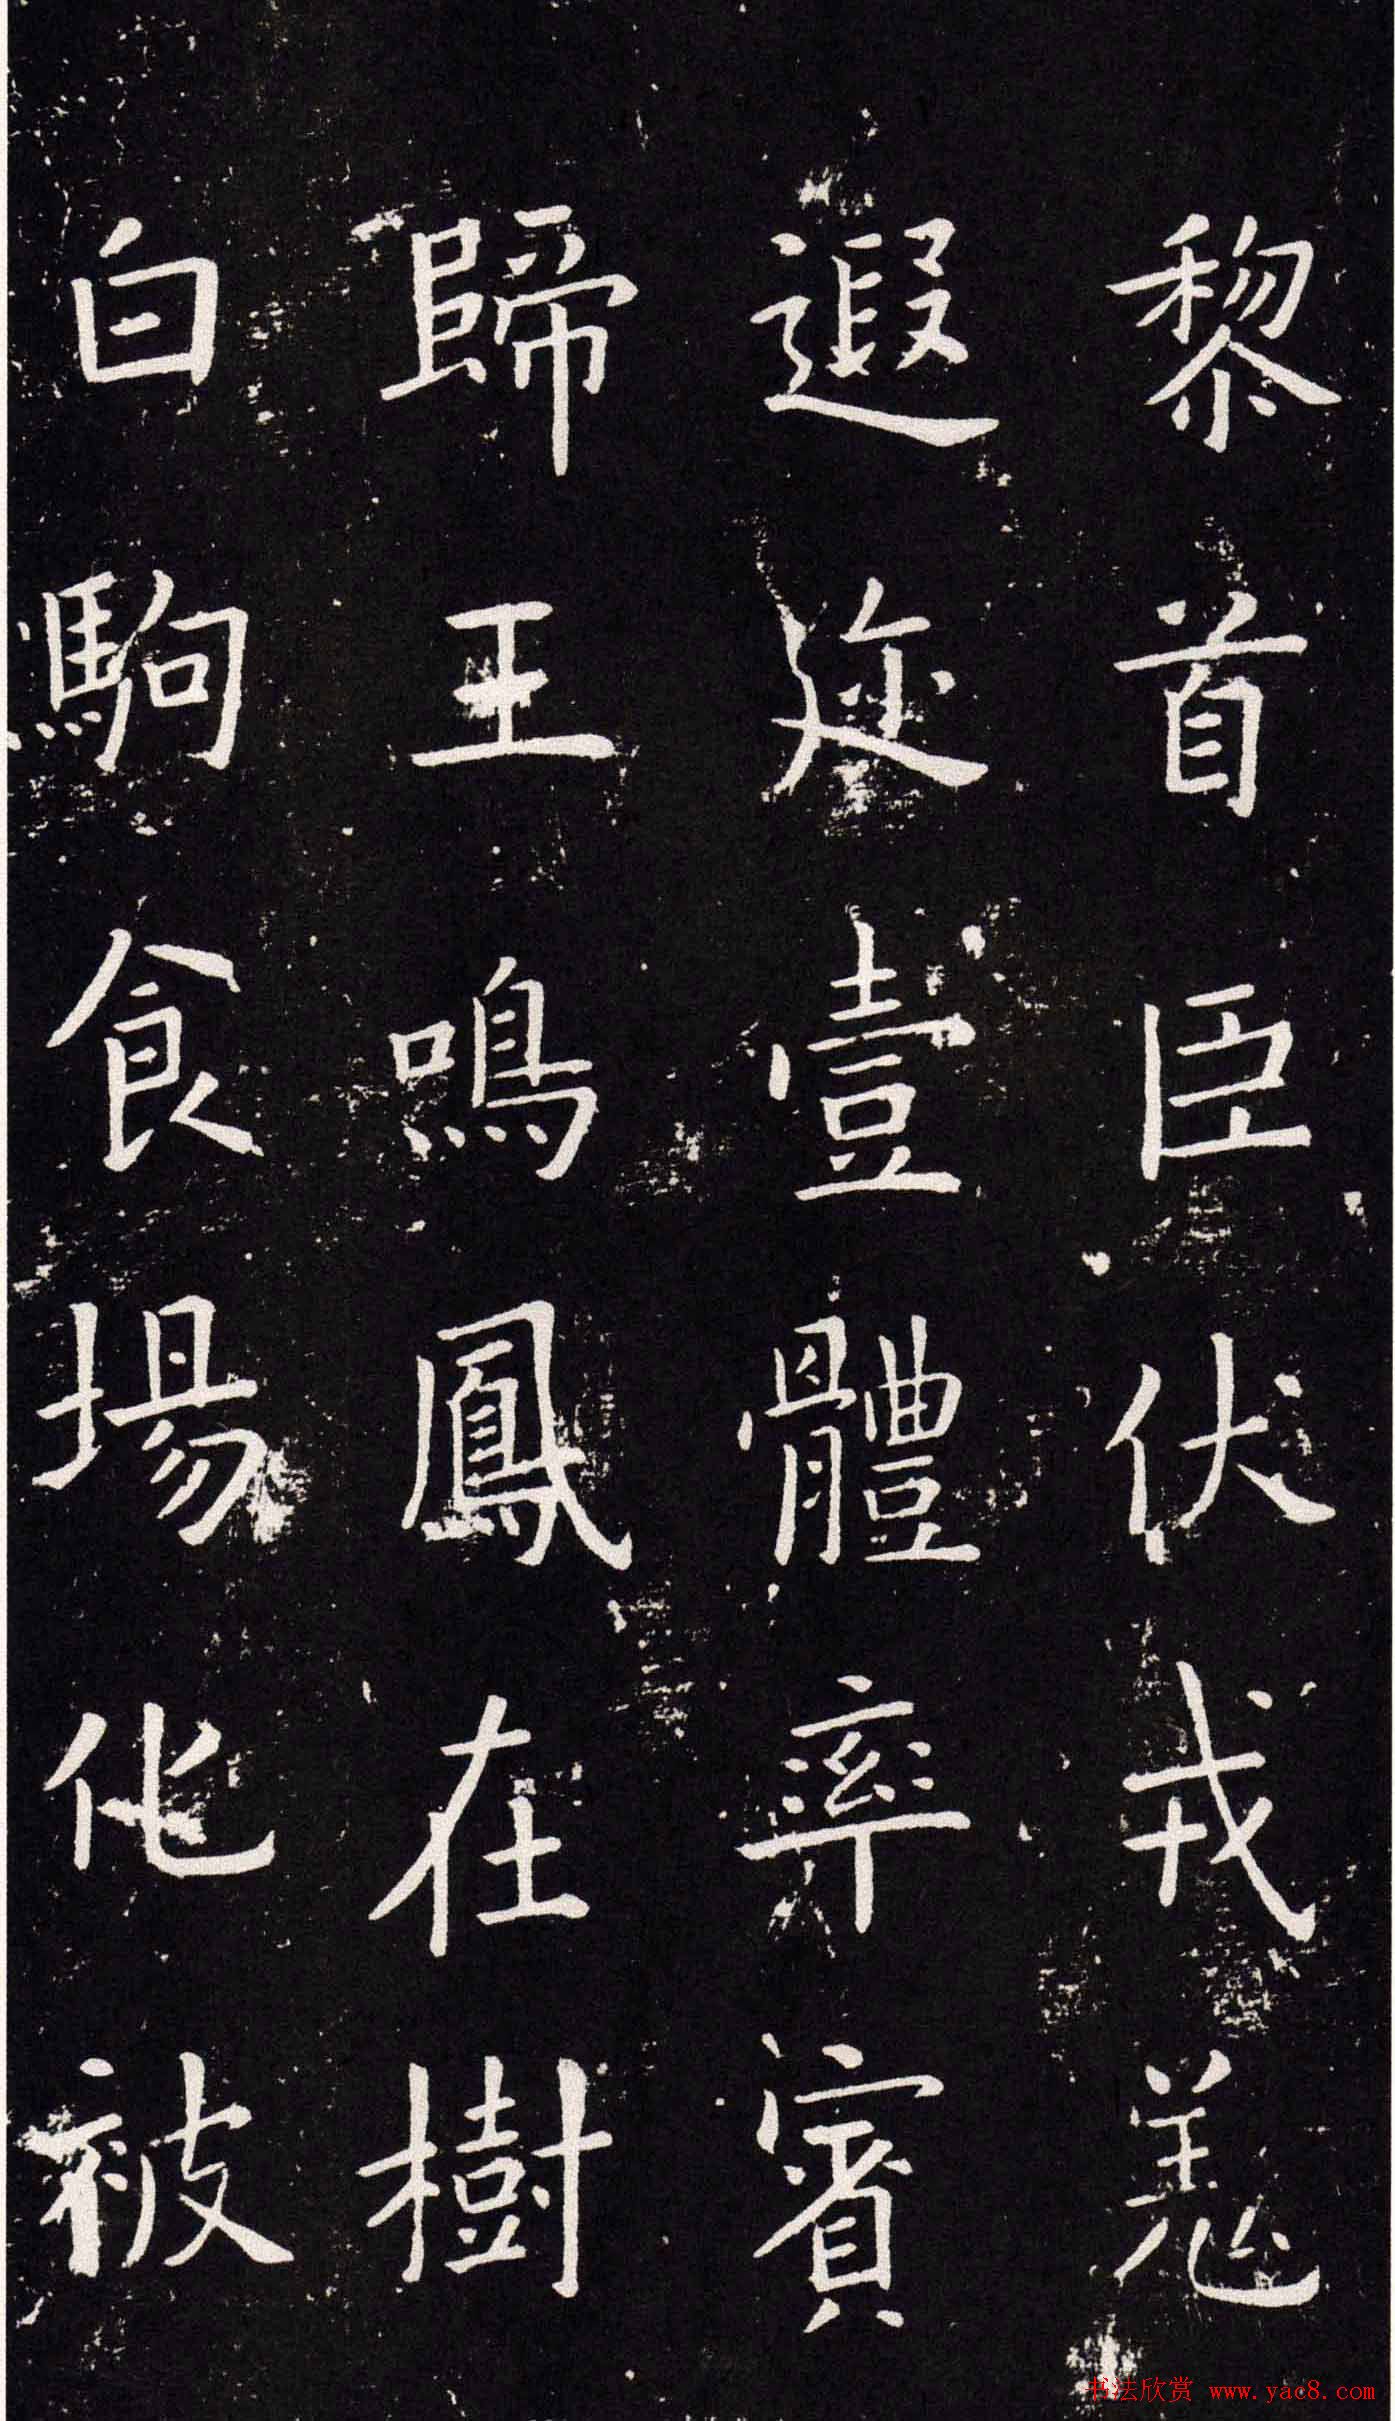 黎首臣伏戎羌
遐迩壹體率賓
歸王鳴鳳在樹
白駒食場化被
书法欣赏 www.yac8.com